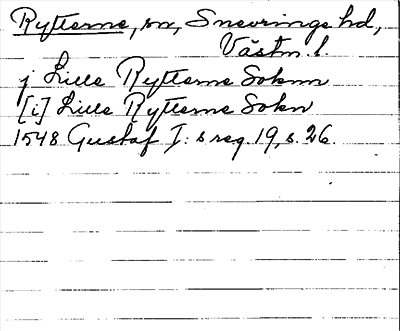 Rytterne, sn, Snevringe hd,
Västm. l.
j Lille Rytterne Soknn
[i] Lille Rytterne Sokn
1548 Gustaf I:s reg. 19, s. 26.